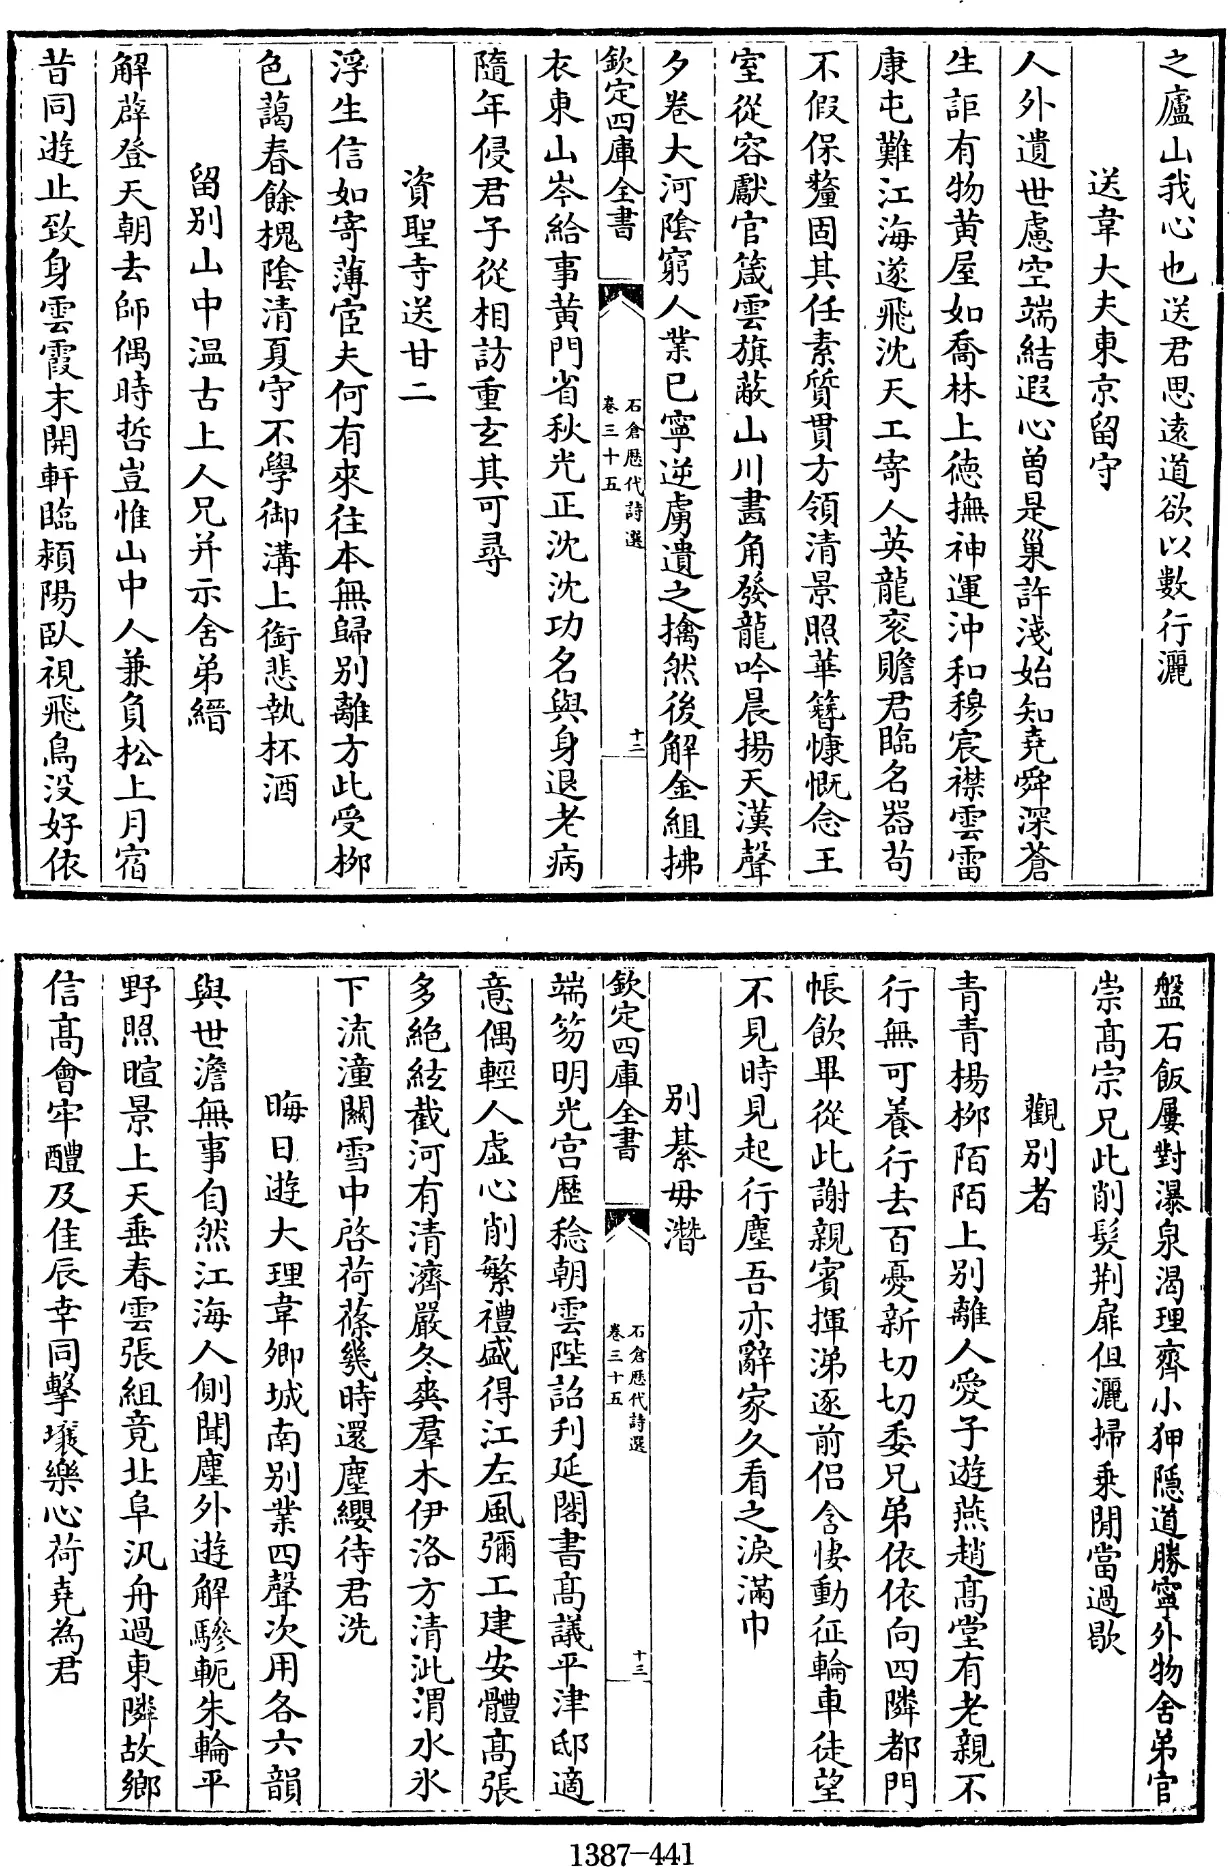 之廬山我心也送君思遠道欲以數行灑
送韋大夫東京留守
人外遺世慮空端結遐心曾是巢許淺始知堯舜深蒼
生詎有物黄屋如喬林上徳撫神運沖和穆宸襟雲雷
康屯難江海遂飛沈天工寄人英龍衮贍君臨名器苟
不假保釐固其任素質貫方領清景照華簪慷慨念王
室從容獻官箴雲旗蔽山川畫角發龍吟晨揚天漢聲
夕卷大河陰窮人業已寧逆虜遺之擒然後解金組拂
欽定四庫全書
石倉歴代詩選
卷三十五
十二
衣東山岑給事黄門省秋光正沈沈功名與身退老病
隨年侵君子從相訪重玄其可尋
資聖寺送甘二
浮生信如寄薄宦夫何有來往本無歸别離方此受柳
色藹春餘槐陰清夏守不學御溝上銜悲執杯酒
留别山中温古上人兄并示舍弟縉
解薜登天朝去師偶時哲豈惟山中人兼負松上月宿
昔同遊止致身雲霞末開軒臨潁陽臥視飛鳥没好依
盤石飯屢對瀑泉渴理齊小狎隱道勝寧外物舍弟官
崇高宗兄此削髮荆扉但灑掃乗閒當過歇
觀别者
青青楊柳陌陌上别離人愛子遊燕趙髙堂有老親不
行無可養行去百憂新切切委兄弟依依向四隣都門
帳飲畢從此謝親賓揮涕逐前侣含悽動征輪車徒望
不見時見起行塵吾亦辭家久看之淚滿巾
别綦毋潛
欽定四庫全書
石倉歴代詩選
卷三十五
十三
端笏明光宫歴稔朝雲陛詔刋延閣書髙議平津邸適
意偶輕人虚心削繁禮盛得江左風彌工建安體髙張
多絶絃截河有清濟嚴冬爽羣木伊洛方清泚渭水氷
下流潼闗雪中啓荷蓧幾時還塵纓待君洗
晦日遊大理韋卿城南别業四聲次用各六韻
與世澹無事自然江海人側聞塵外遊解驂軛朱輪平
野照暄景上天垂春雲張組竟北阜汎舟過東隣故鄉
信髙會牢醴及佳辰幸同擊壤樂心荷堯為君
1387-441